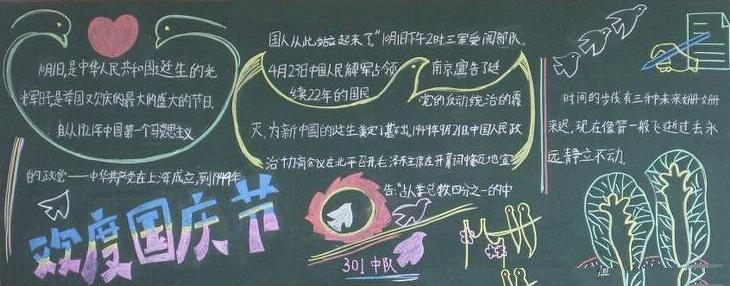 10月1日,是中华人民共和国诞生的光
光辉日子,是举国欢庆的最大的盛大的节日.
自从1921年中国第一个马克思主义
的政党——中华共产党在上海成立,到1949年
欢度国庆节
国人从此站立起来了."10月1日下午2时三军受阅部队.
4月23日中国人民解军占领
南京,宣告了延
续22年的国民
党的反动统治的覆
灭,为新中国的诞生奠定了基出,1949年9月21日,中国人民政
治协商会议在北平召开,毛泽东主席在开幕词慷慨地宣
告:"占人类总数四分之一的中
301中队
时间的步伐有三种:未来姗姗
来迟,现在像箭一般飞逝,过去永
远静立不动.